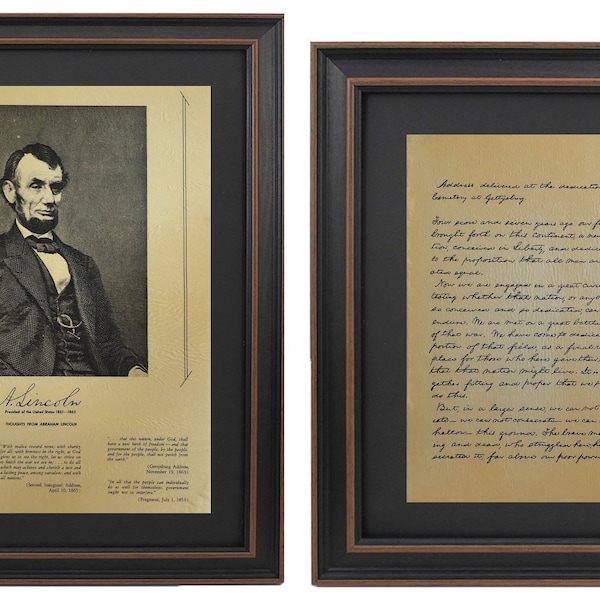 A. Lincoln
President of the United States 1861-1865
THOUGHTS FROM ABRAHAM LINCOLN
"With malice toward none; with charity
for all; with firmness in the right, as God
gives us to see the right, let us strive to
finish the work we are in: . . . to do all
which may achieve and cherish a just and
a lasting peace, among ourselves, and with
all nations."
(Second Inaugural Address,
April 10, 1865)
". . . that this nation, under God, shall
have a new birth of freedom—and that
government of the people, by the people,
and for the people, shall not perish from
the earth."
(Gettysburg Address,
November 19, 1863)
"In all that the people can individually
do as well for themselves, government
ought not to interfere."
(Fragment, July 1, 1854)
Address delivered at the dedication
Cemetery at Gettysburg.
Four score and seven years ago our f
brought forth on this continent, a new
tion, conceived in Liberty, and dedica
to the proposition that all men are
ated equal.
Now we are engaged in a great civil
testing whether that nation, or any
so conceived and so dedicated, can
endure. We are met on a great battle
of that war. We have come to dedica
portion of that field, as a final r
place for those who here gave thei
that that nation might live. It i
gether fitting and proper that we
do this.
But, in a larger sense, we can not
cate— we can not consecrate— we can
hallow— this ground. The brave me
ing and dead, who struggled here ha
secrated it, far above our poor pow